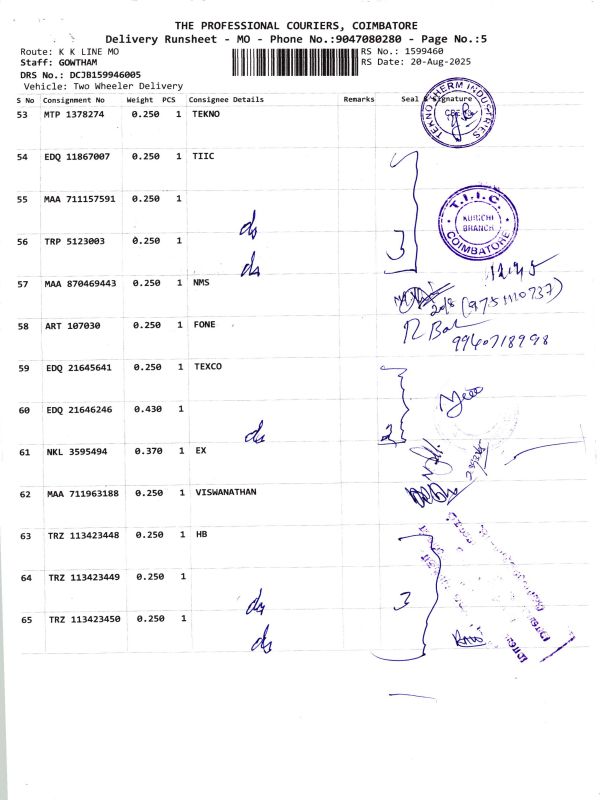 THE PROFESSIONAL COURIERS, COIMBATORE
Delivery Runsheet - MO - Phone No.:9047080280 - Page No.:5
Route: K K LINE MO
RS No.: 1599460
Staff: GOWTHAM
RS Date: 20-Aug-2025
DRS No.: DCJB159946005
Vehicle: Two Wheeler Delivery
S No Consignment No Weight PCS Consignee Details Remarks Seal & Signature
53 MTP 1378274 0.250 1 TEKNO
TEKNO THERM INDUSTRIES
54 EDQ 11867007 0.250 1 TIIC
55 MAA 711157591 0.250 1
T.I.I.C. KURICHI BRANCH COIMBATORE
ds
56 TRP 5123003 0.250 1
3
ds
57 MAA 870469443 0.250 1 NMS
12.45
58 ART 107030 0.250 1 FONE
9940718998
59 EDQ 21645641 0.250 1 TEXCO
60 EDQ 21646246 0.430 1
ds
2
61 NKL 3595494 0.370 1 EX
62 MAA 711963188 0.250 1 VISWANATHAN
63 TRZ 113423448 0.250 1 HB
64 TRZ 113423449 0.250 1
ds
3
65 TRZ 113423450 0.250 1
ds